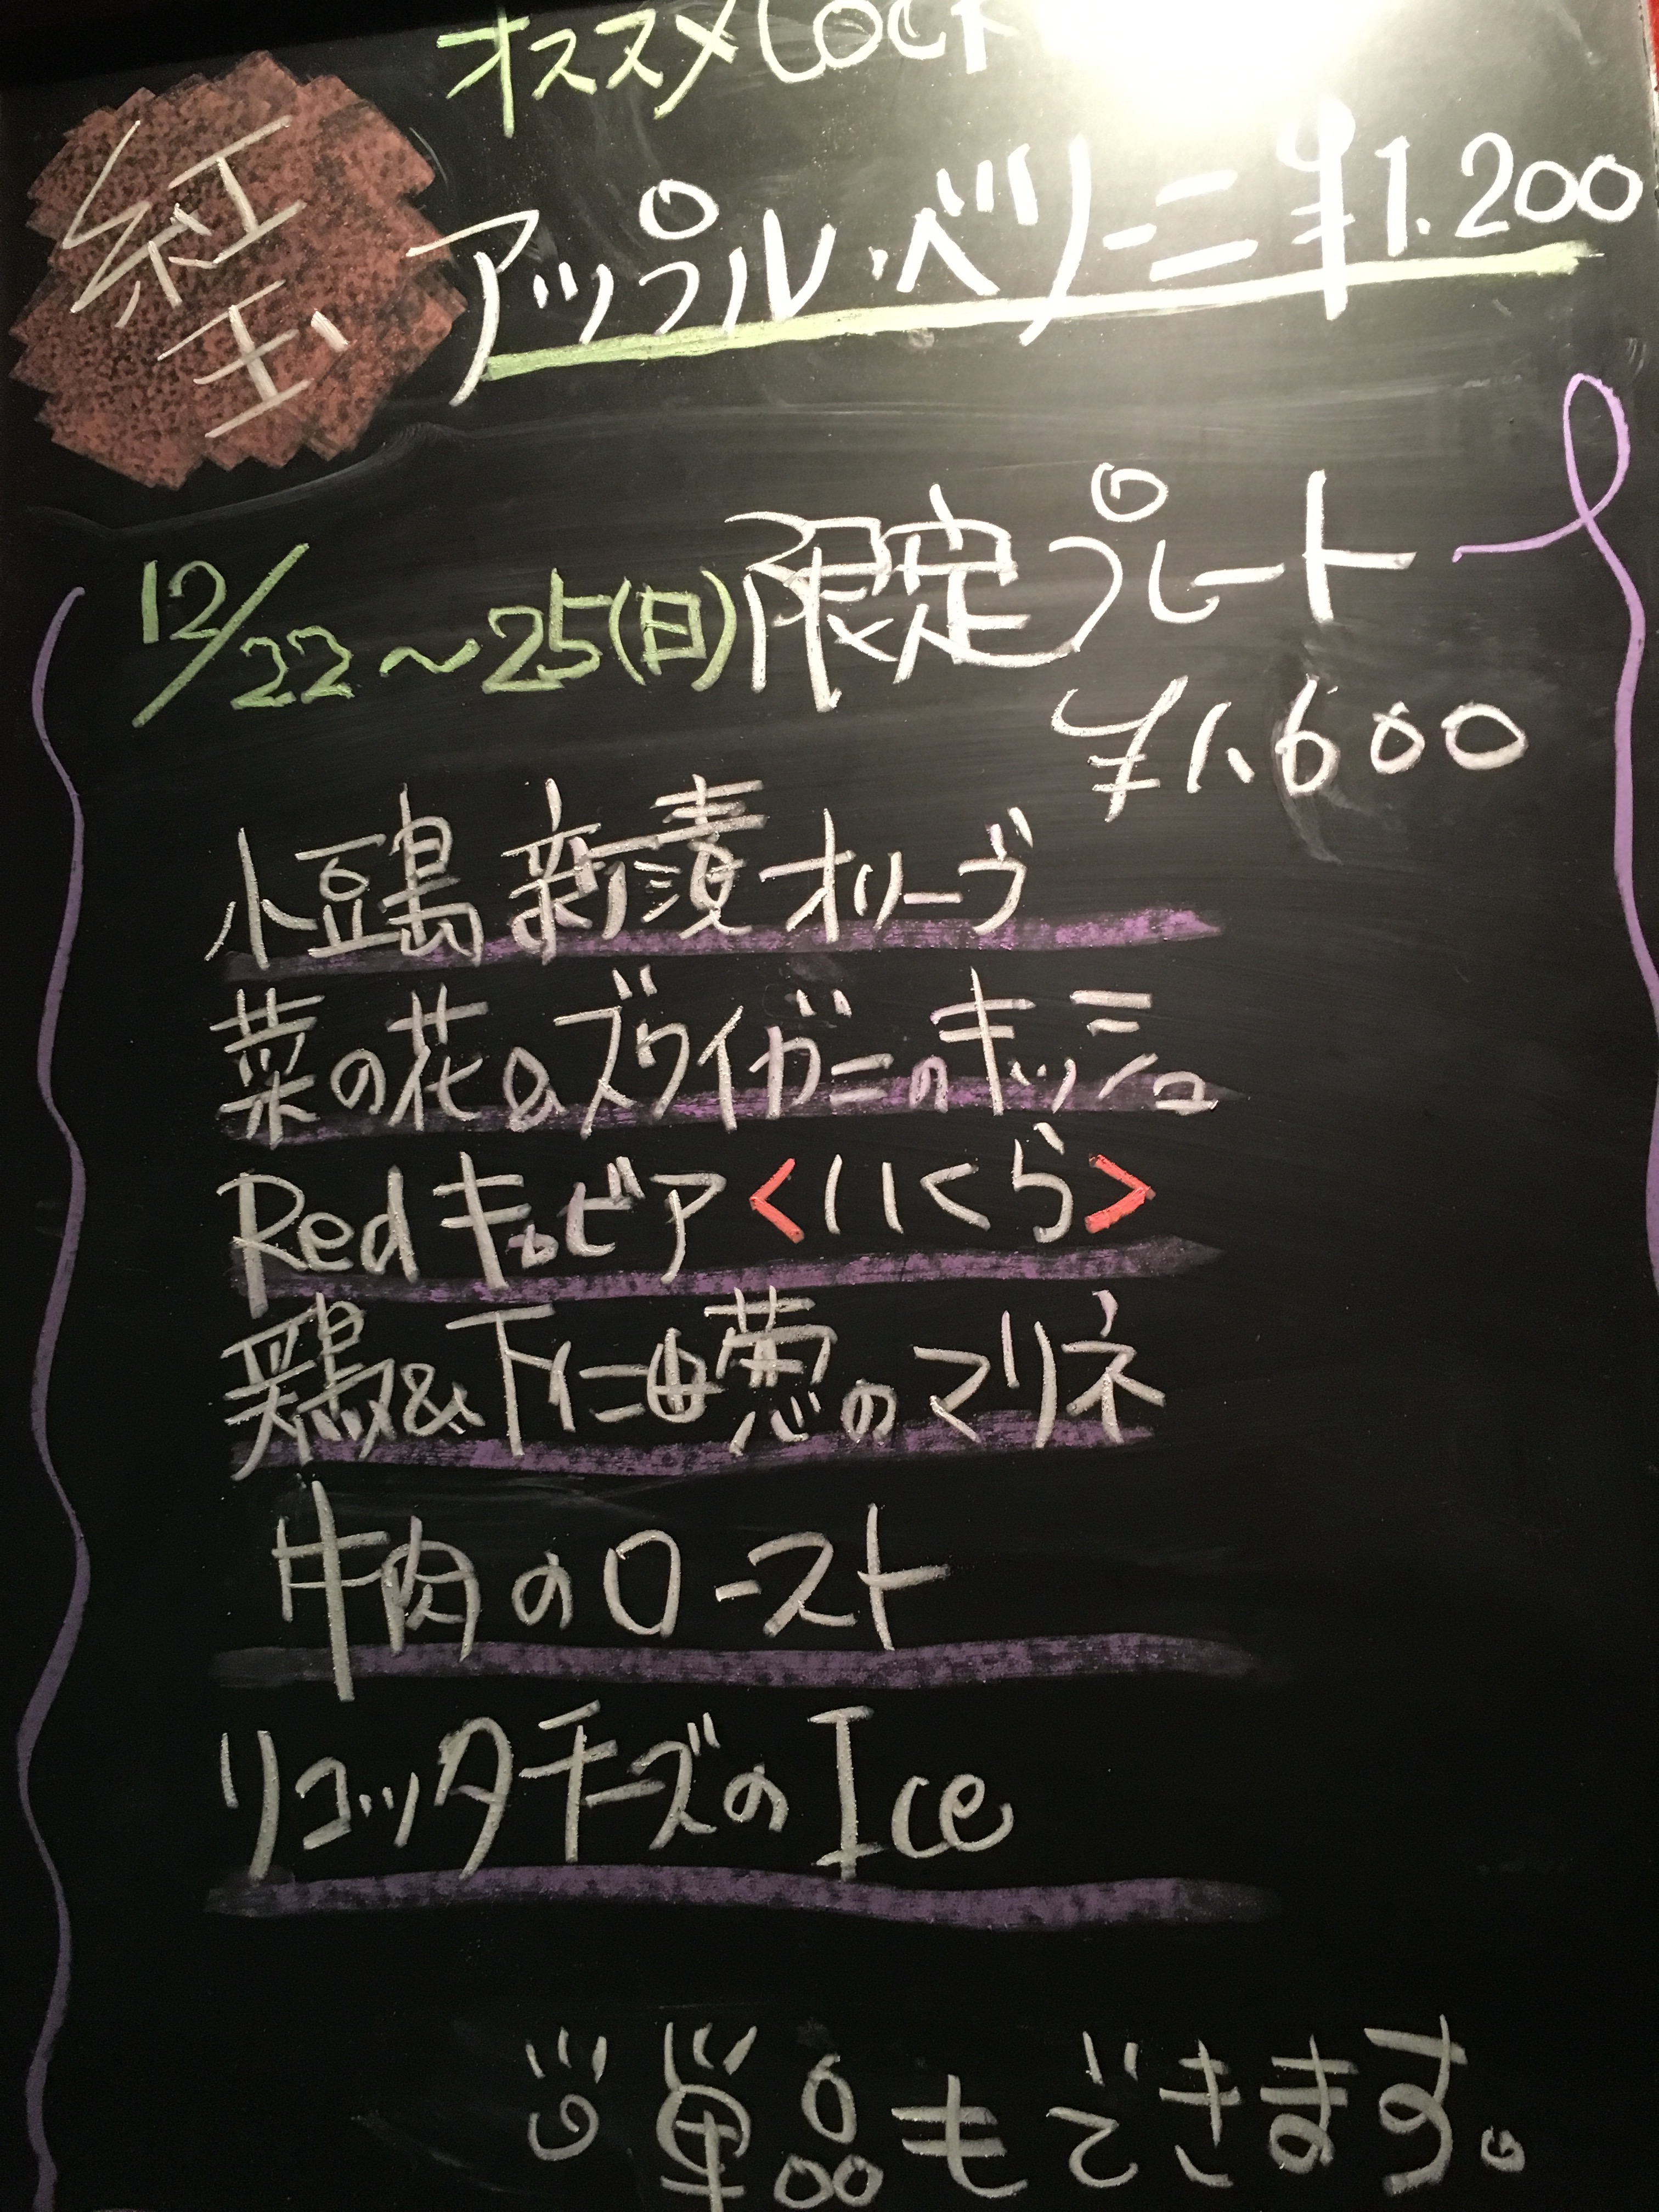 オススメ Cock
紅玉
アップル・ベリーニ ¥1.200
12/22~25(日)限定プレート
¥1,600
小豆島 新漬オリーブ
菜の花&ズワイガニのキッシュ
Red キャビア<いくら>
鶏&下仁田葱のマリネ
牛肉のロースト
リコッタチーズのIce
単品もできます。